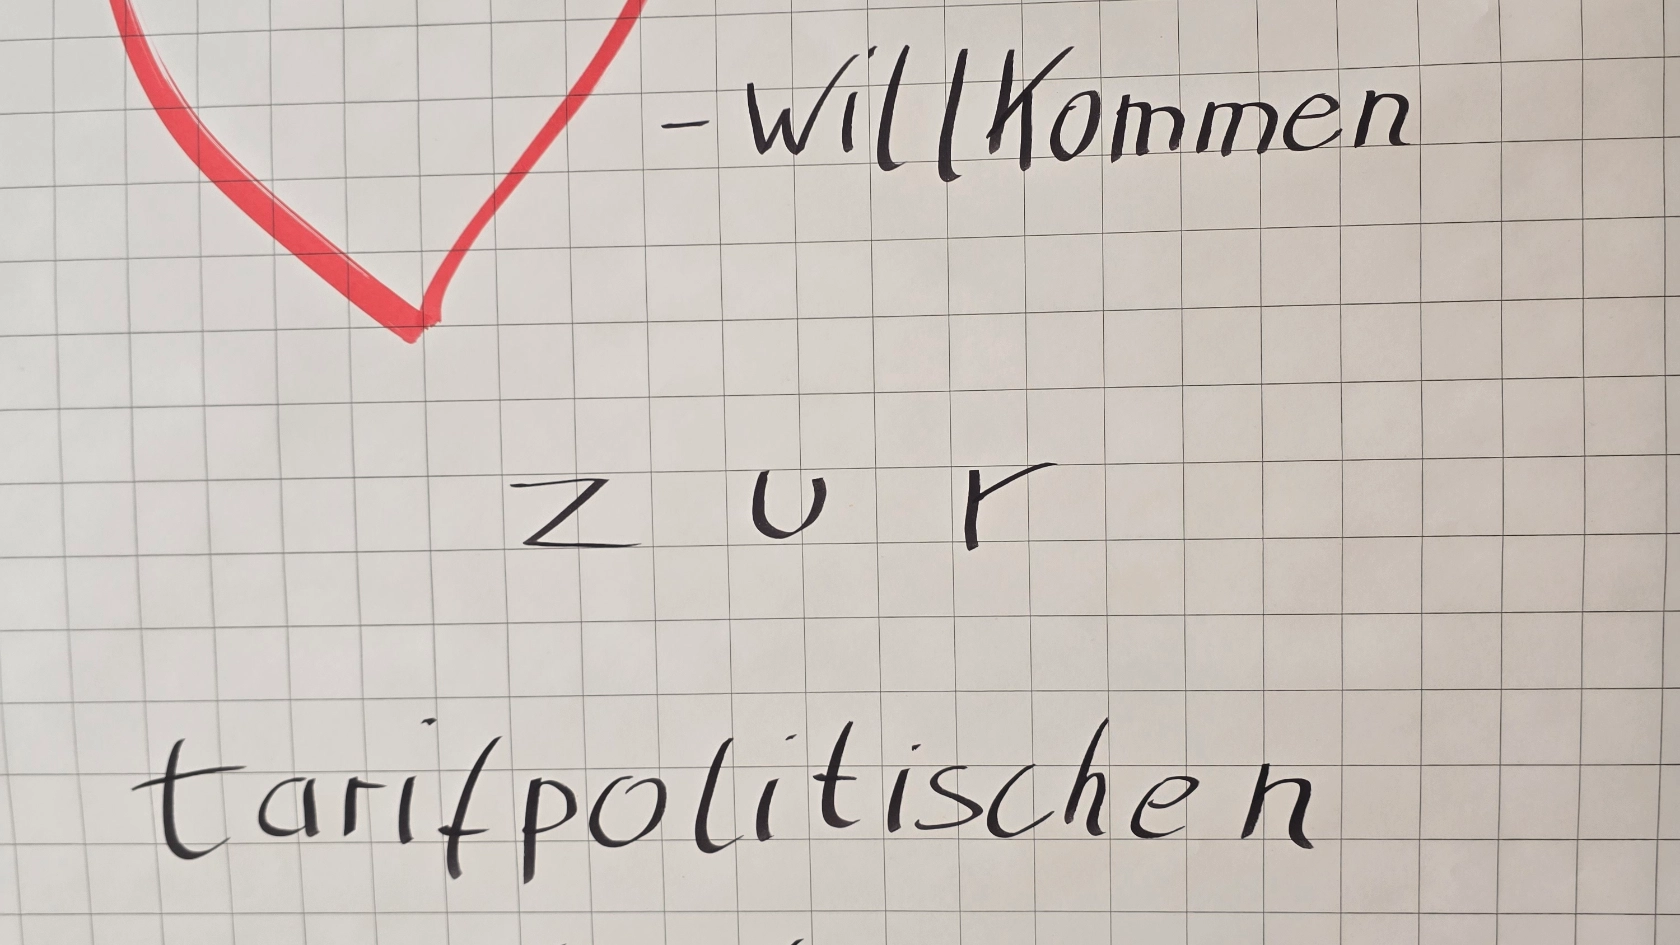 - Willkommen
zur
tarifpolitischen